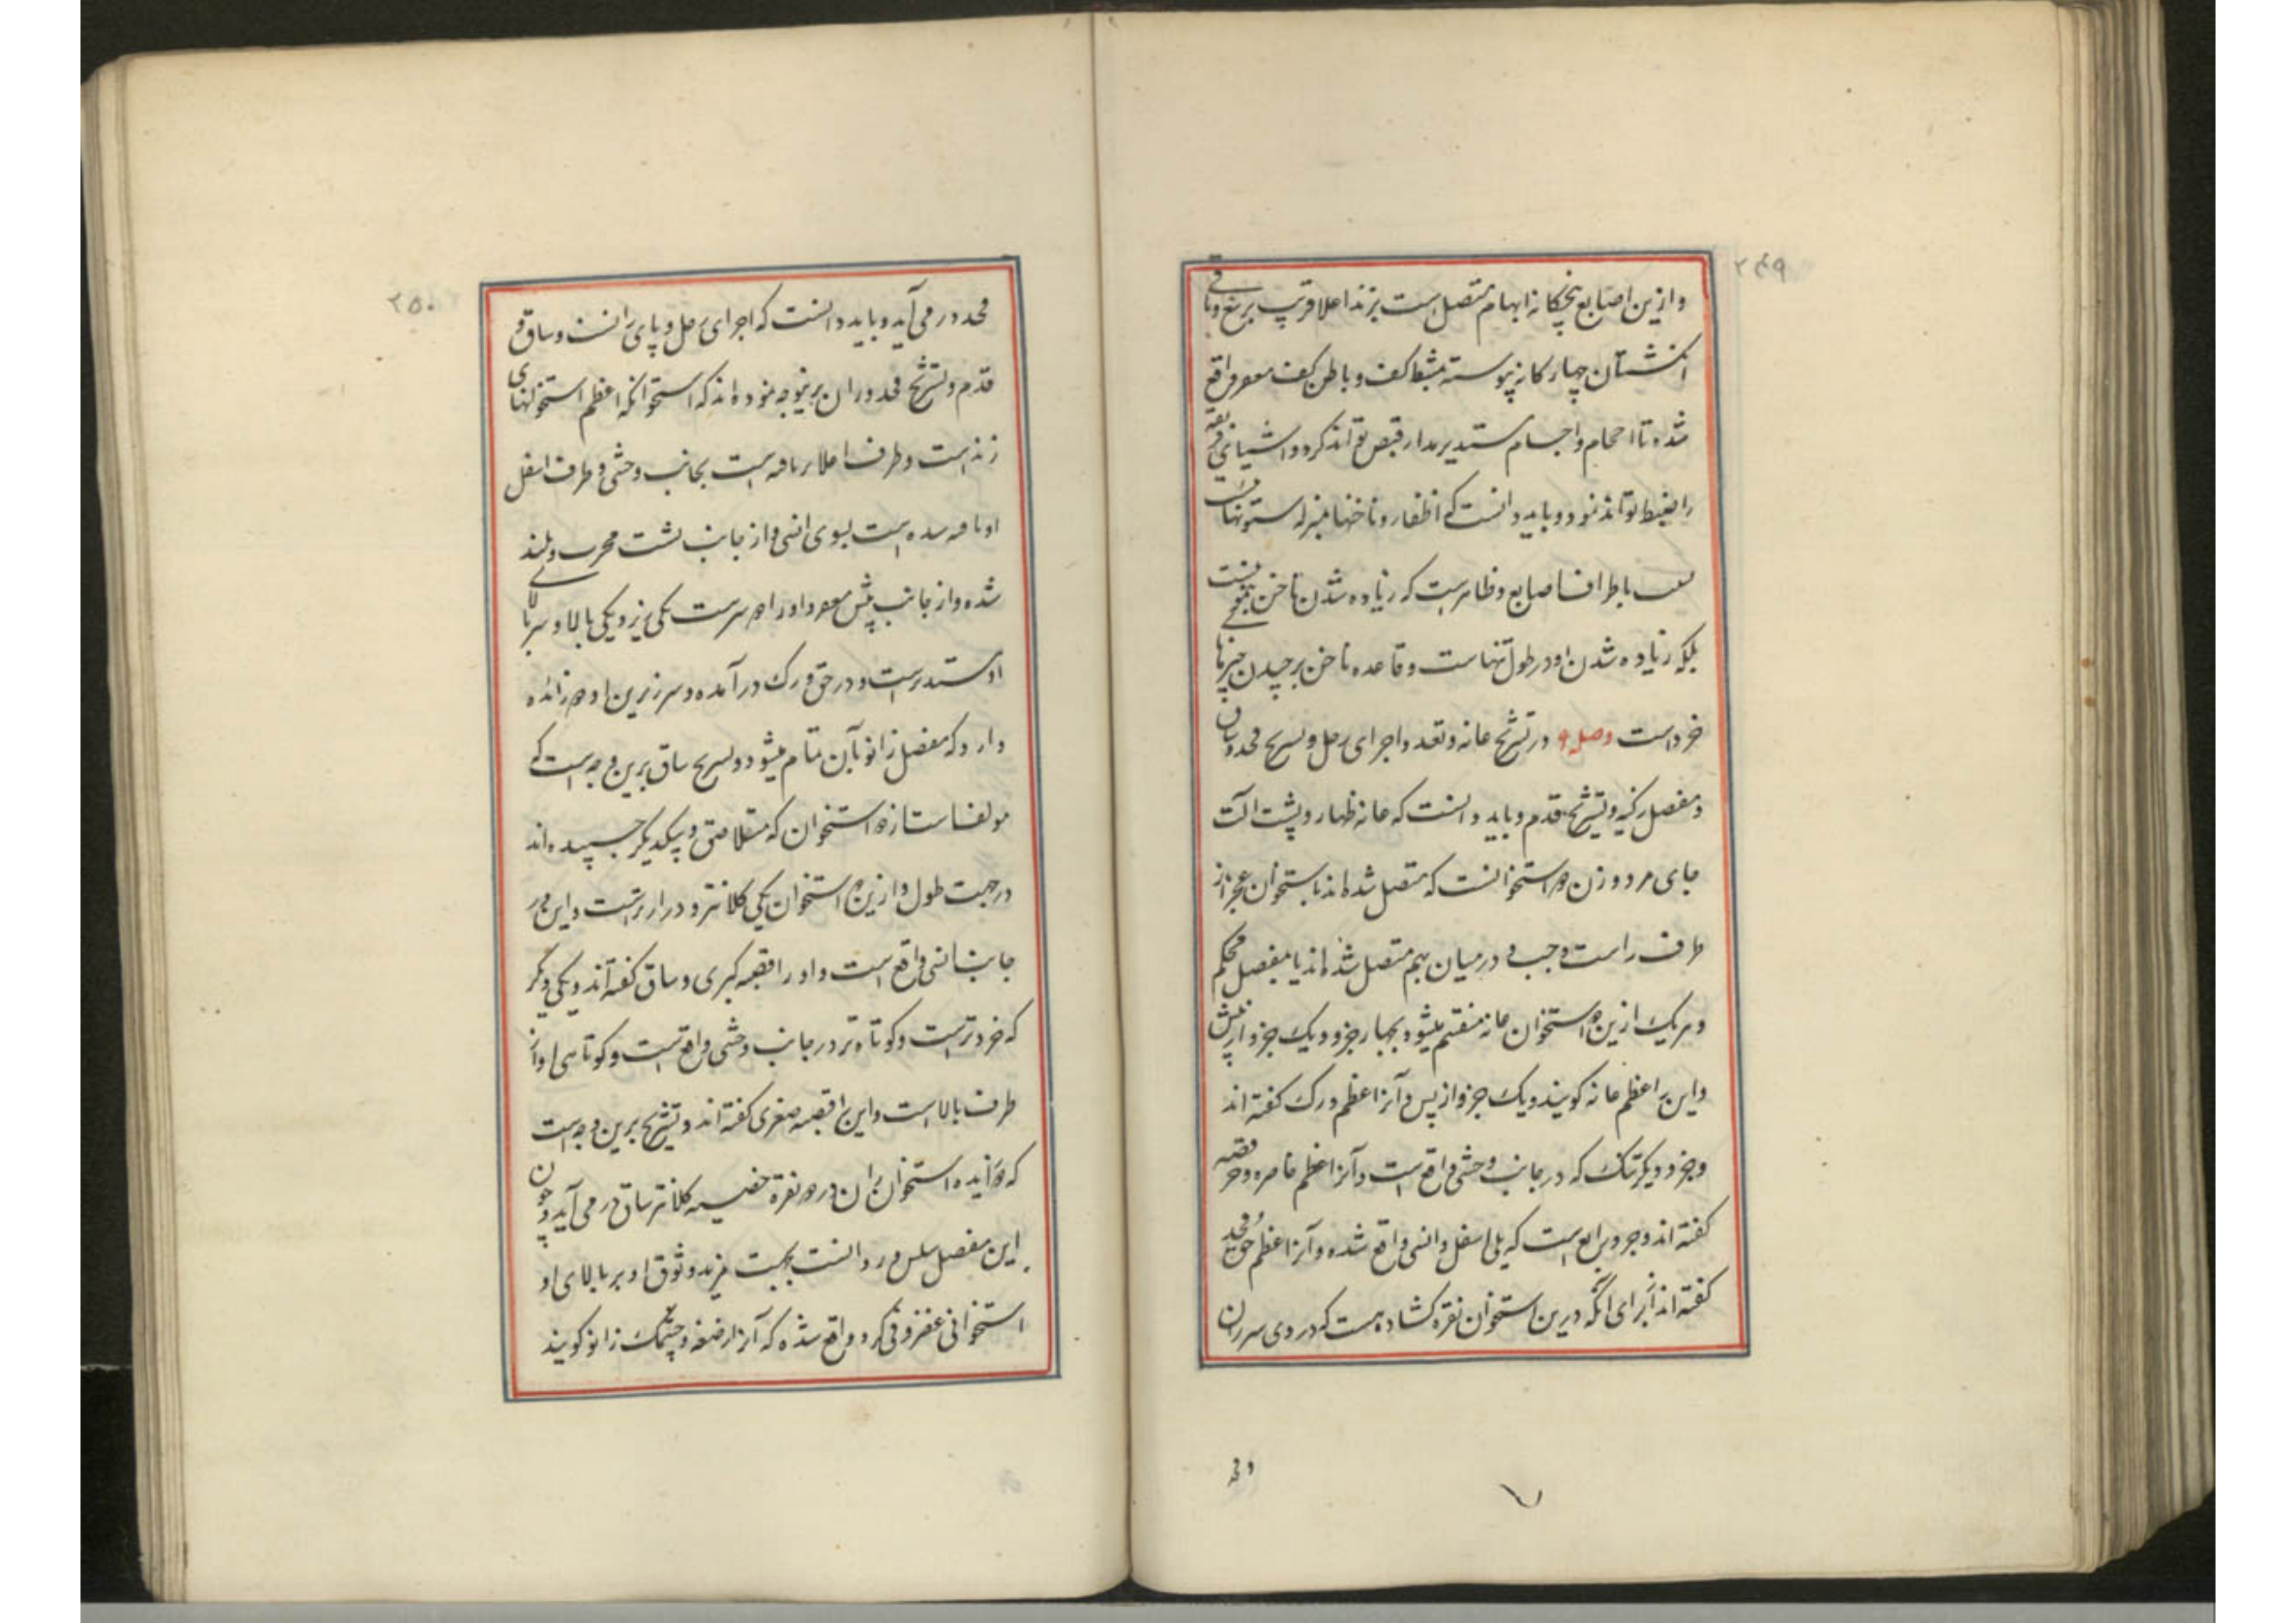 ۲۴۹
و ازین اصابع پنجکانه ابهام متصل است بزند اعلا قریب برسغ و باقی
انکشتان چهارکانه پیوسته بمشط کف و باطن کف مقعر واقع
شده تا احجام و اجسام مستدیر مدار قبض تواند کرد و اشیای رقیقه
را ضبط تواند نمود و باید دانست که اظفار و ناخنها بمنزله ستونهاست
باطراف اصابع و ظاهرست که زیاده شدن ناخن بنمو نیست
بلکه زیاده شدن او در طول تنهاست و قاعده ناخن برچیدن چیزهای
خرد است وصل ۹ در تشریح عانه و تعدد اجرای رجل و تشریح فخذ و ساق
و مفصل رکبه و تشریح قدم و باید دانست که عانه ظهار و پشت الت
جای مرد و زن دو استخوانست که متصل شده اند باستخوان عجز از
طرف راست و چپ و در میان بهم متصل شده اند با مفصل محکم
و هریک ازین دو استخوان عانه منقسم میشود بچهار جزو و یک جزو از پیش
و این را عظم عانه کویند و یک جزو از پس و آنرا عظم ورک کفته اند
و جزو دیکر تنک که در جانب وحشی واقع است و آنرا عظم خاصره و حرقفه
کفته اند و جزو رابع است که یلی اسفل و انسی واقع شده و آنرا عظم حق فخذ
کفته اند برای آنکه درین استخوان نقره کشاده هست که در وی سر ران
و فخذ
۲۵۰
فخذ در می آید و باید دانست که اجرای رجل و پای رانست و ساق و
قدم و تشریح فخذ و ران برینوجه نموده اند که استخوانکه اعظم استخوانهای
زند است و طرف اعلا بر است بجانب وحشی و طرف اسفل
او شده است بسوی انسی و از جانب پشت محدب و بلند
شده و از جانب پیش مقعر و او را دو سر است یکی زیر و یکی بالا و سر بالای
او مستدیرست و در حق ورک در آمده و سر زیرین او دو زائده
دارد که مفصل زانو بآن تمام میشود و تشریح ساق برین وجه است که
مولف است از دو استخوان که متلاصق و بیکدیکر چسپیده اند
در جهت طول و ازین دو استخوان یکی کلانتر و درازترست و این در
جانب انسی واقع است و او را قصبه کبری و ساق کفته اند و یکی دیکر
که خردترست و کوتاه تر در جانب وحشی واقع است و کوتاهی او از
طرف بالاست و این را قصبه صغری کفته اند و تشریح برین وجه است
که دو زایده استخوان ران در دو نقره قصبه کلانتر ساق در می آید و چون
این مفصل سلس در رد آنست بجهت مزید وثوق او بر بالای او
استخوانی غضروفی کرد واقع شده که آنرا رضفه و چشمک زانو کویند